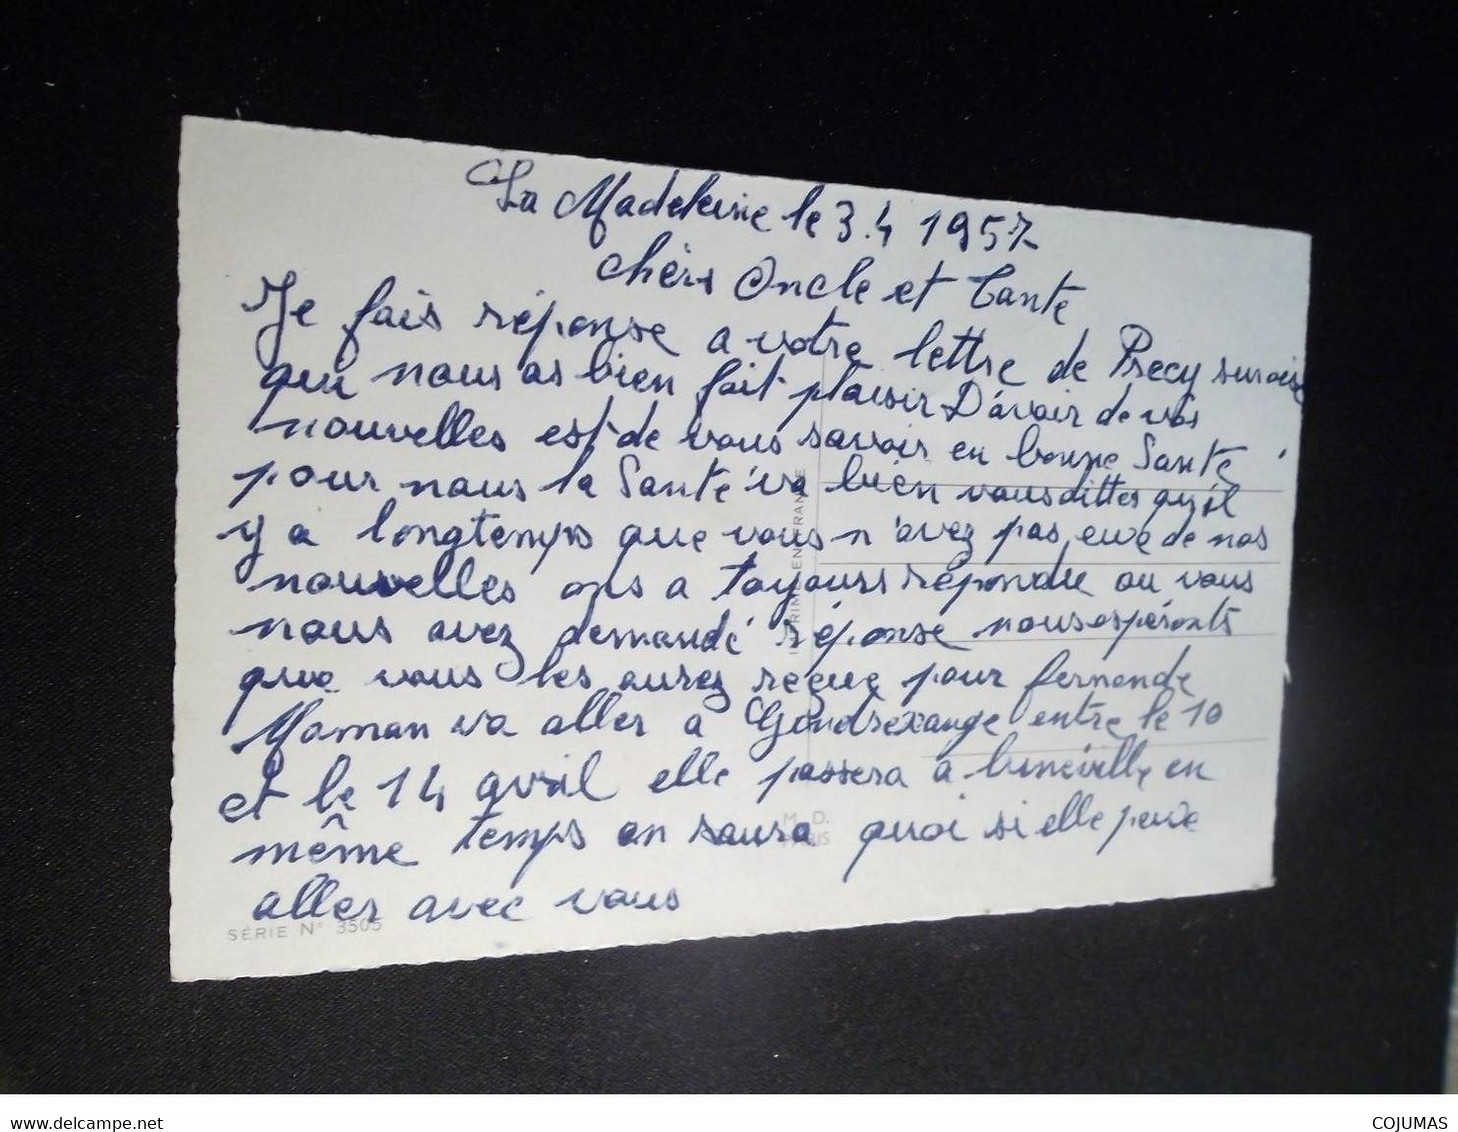 La Madeleine le 3.4 1957
chèrs Oncle et Tante
Je fais réponse a votre lettre de Précy sur oise
qui nous as bien fait plaisir D'avoir de vos
nouvelles est de vous savoir en bonne Santé
pour nous la Santé va bien vous dittes qu'il
y a longtemps que vous n'avez pas eue de nos
nouvelles ons a toujours répondue ou vous
nous avez demandé réponse nous espéronts
que vous les aurez reçue pour fernande
Maman va aller a Gondrexange entre le 10
et le 14 avril elle passera a lunéville en
même temps on saura quoi si elle peue
aller avec vous
IMPRIMÉ EN FRANCE
M. D.
PARIS
SÉRIE N° 3505
www.delcampe.net
COJUMAS